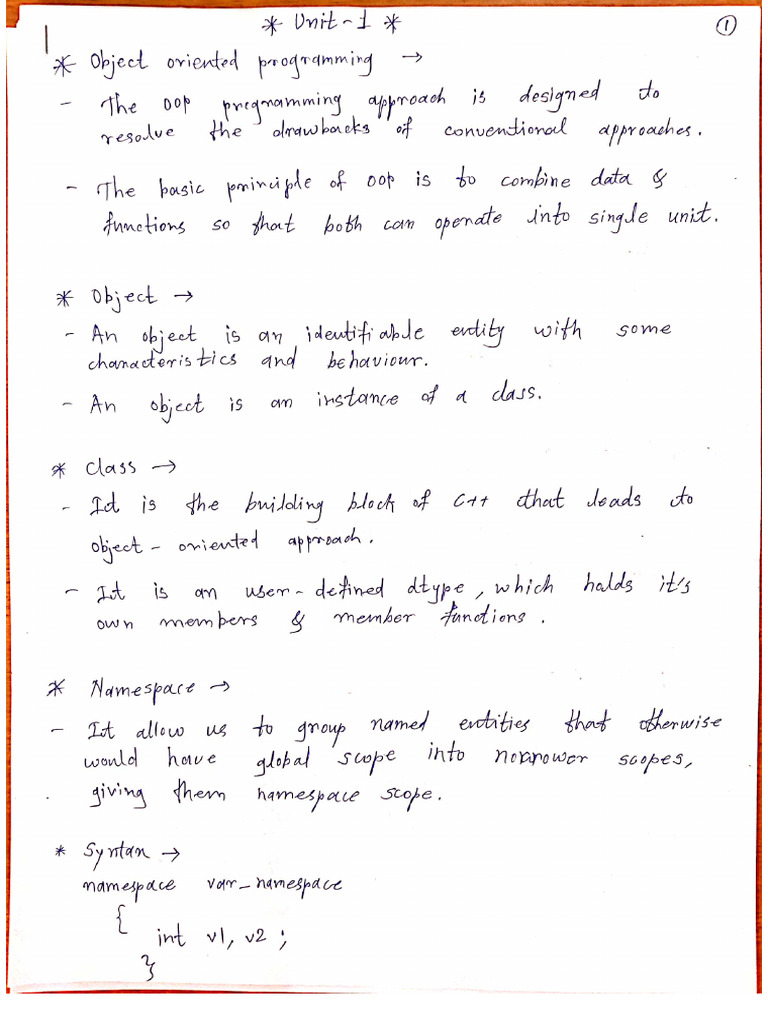 * Unit-1 *
1
* Object oriented programming →
- The OOP programming approach is designed to
resolve the drawbacks of conventional approaches.
- The basic principle of OOP is to combine data &
functions so that both can operate into single unit.
* Object →
- An object is an identifiable entity with some
characteristics and behaviour.
- An object is an instance of a class.
* Class →
- It is the building block of C++ that leads to
object-oriented approach.
- It is an user-defined dtype, which holds it's
own members & member functions.
* Namespace →
- It allow us to group named entities that otherwise
would have global scope into narrower scopes,
giving them namespace scope.
* Syntax →
namespace var_namespace
{
int v1, v2 ;
}